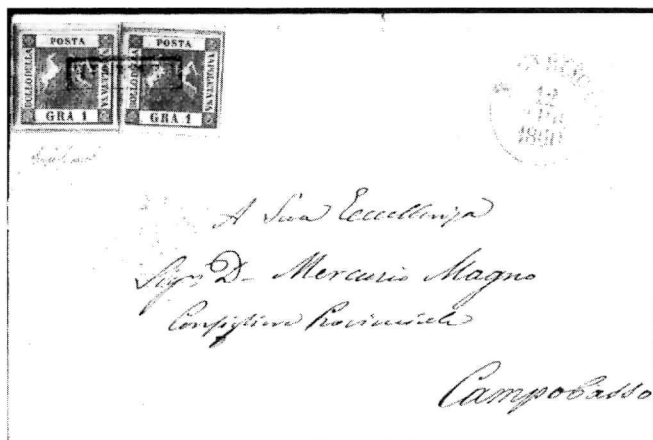 POSTA
BOLLO DELLA
NAPOLETANA
GRA 1
POSTA
BOLLO DELLA
NAPOLETANA
GRA 1
12
1860
A Sua Eccellenza
Sigr. D- Mercurio Magno
Consigliere Provinciale
Campobasso